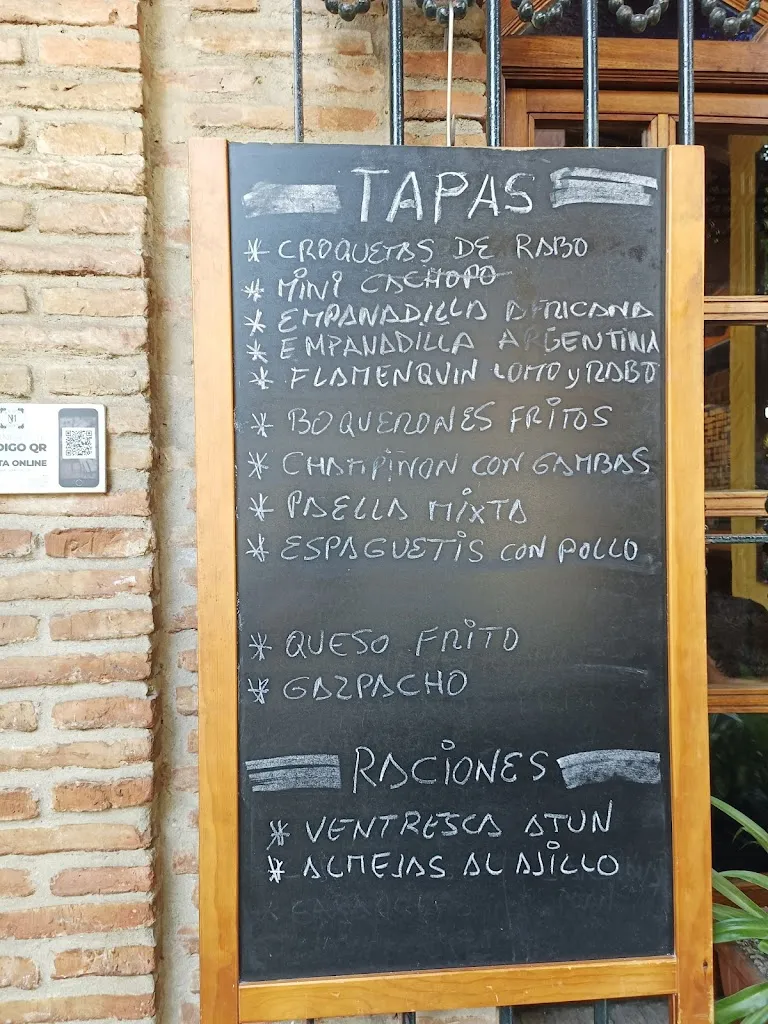 TAPAS
* CROQUETAS DE RABO
* MINI CACHOPO
* EMPANADILLA AFRICANA
* EMPANADILLA ARGENTINA
* FLAMENQUIN LOMO y RABO
* BOQUERONES FRITOS
* CHAMPIÑON CON GAMBAS
* PAELLA MIXTA
* ESPAGUETIS CON POLLO
* QUESO FRITO
* GAZPACHO
RACIONES
* VENTRESCA ATUN
* ALMEJAS AL AJILLO
DIGO QR
TA ONLINE